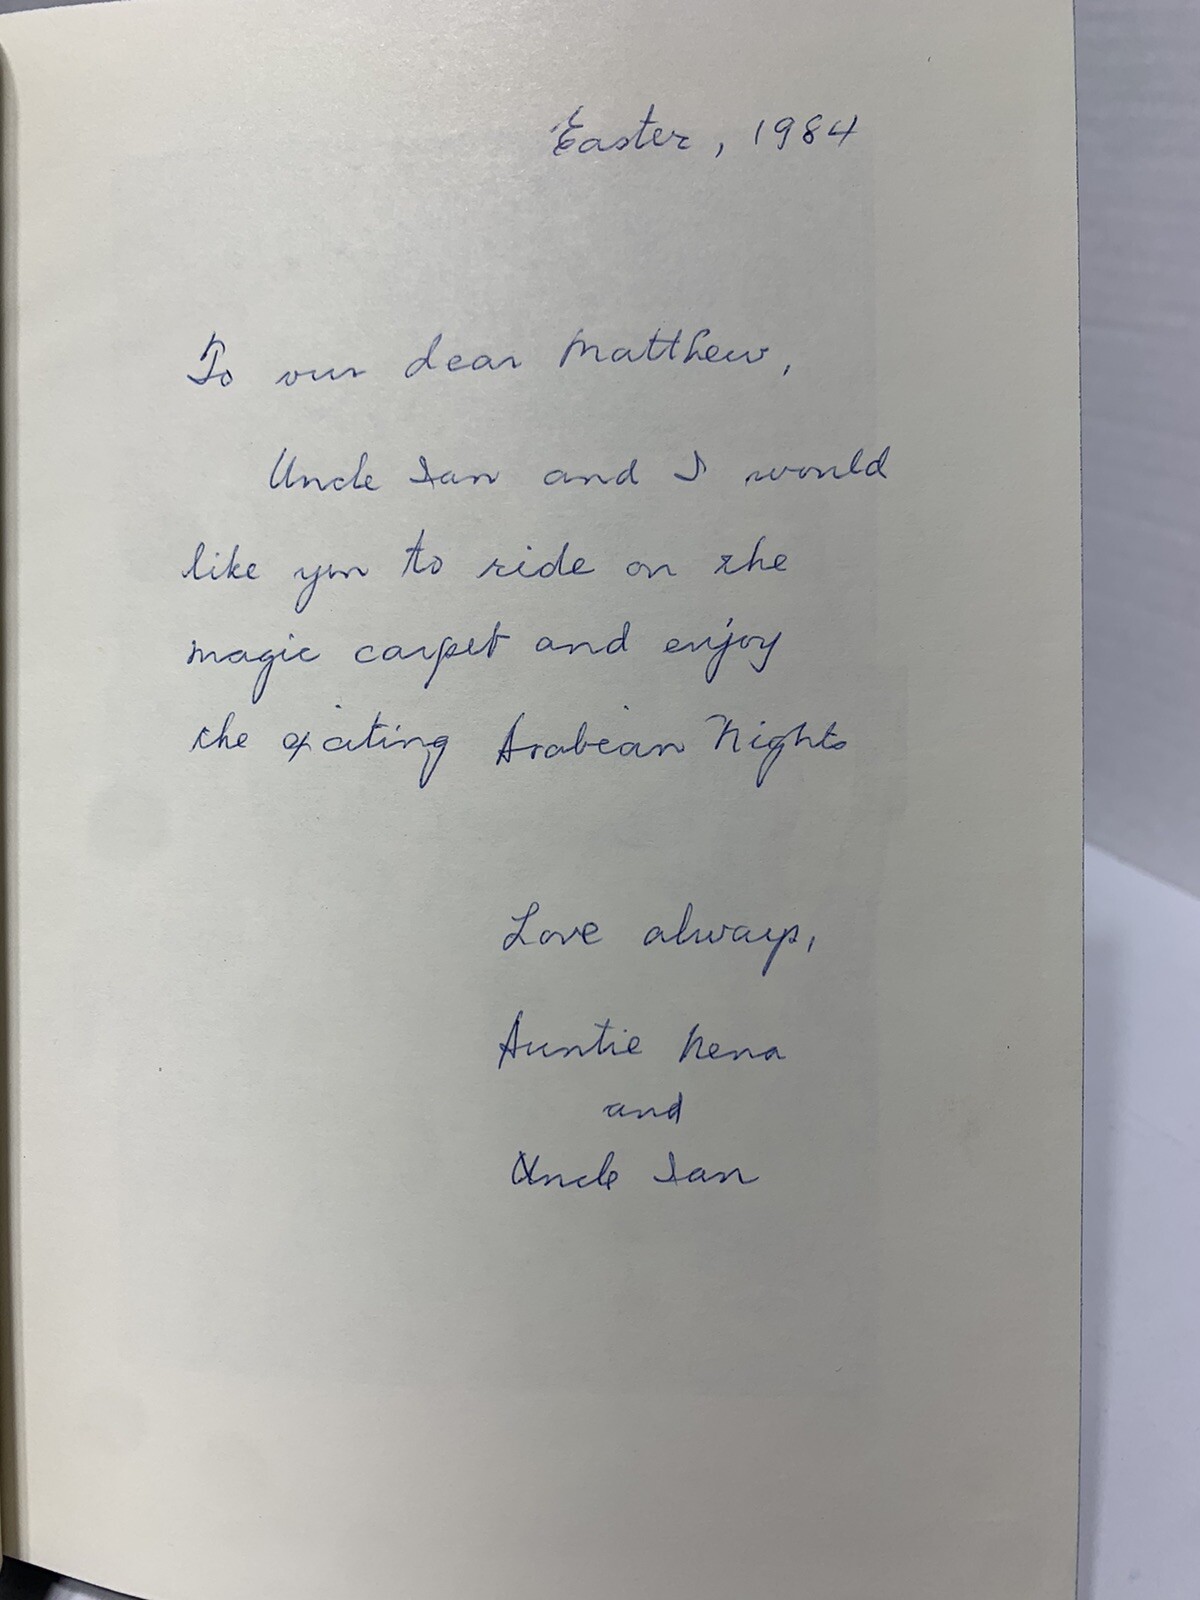 Easter, 1984
To our dear Matthew,
Uncle Ian and I would
like you to ride on the
magic carpet and enjoy
the exiting Arabian Nights
Love always,
Auntie Nena
and
Uncle Ian